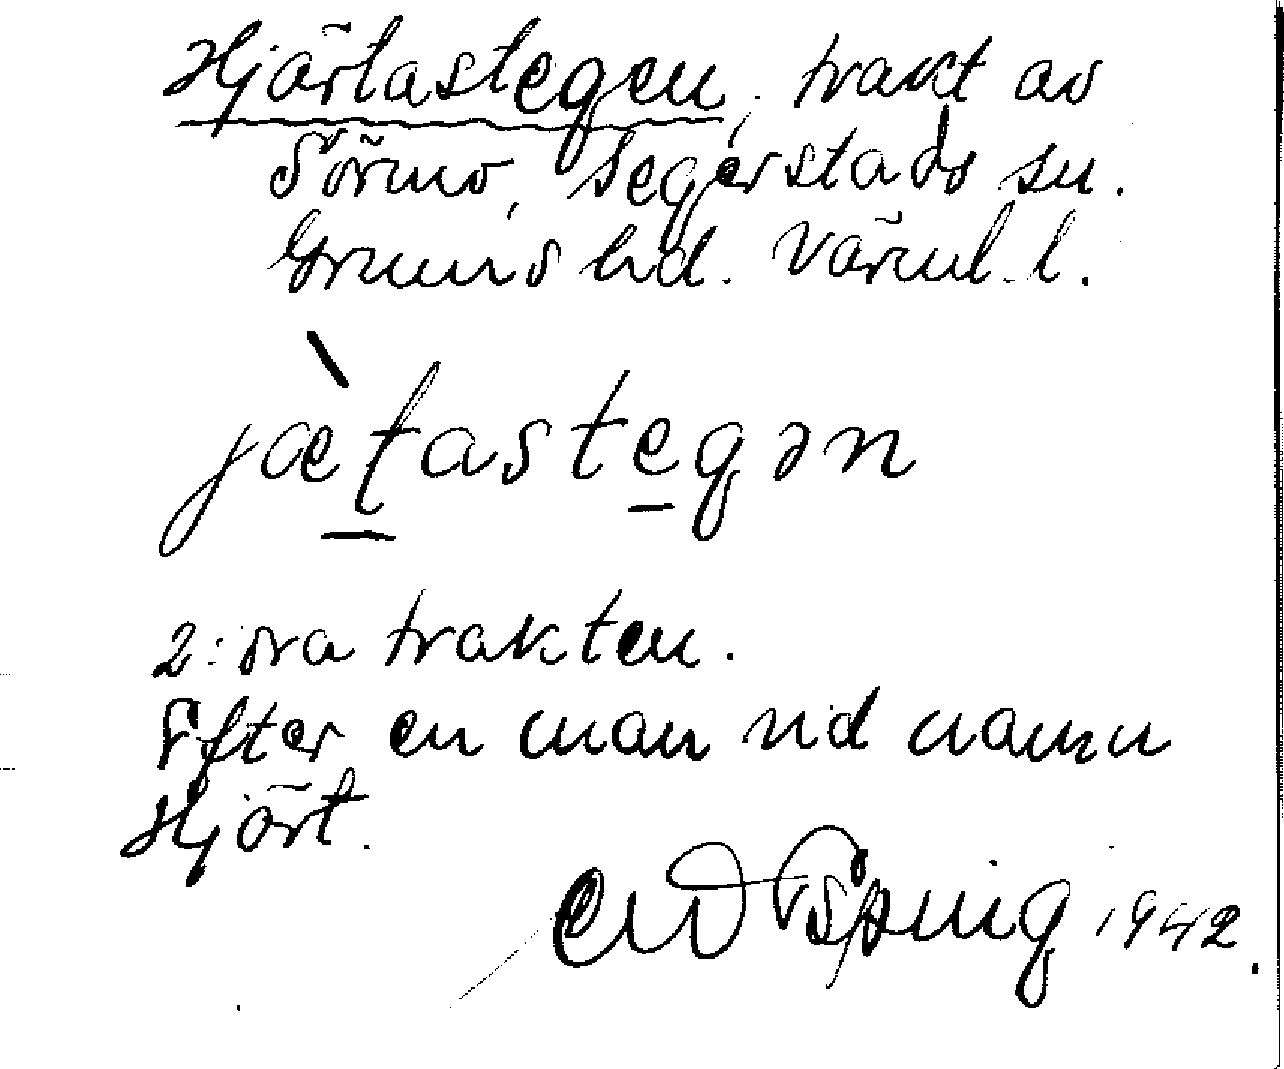 Hjärtastegen, trakt av
Sörmo, Segerstads sn.
Grums hd. Värml. l.
jæ̀tastegən
2:dra trakten.
Efter en man vid namn
Hjärt.
1942.